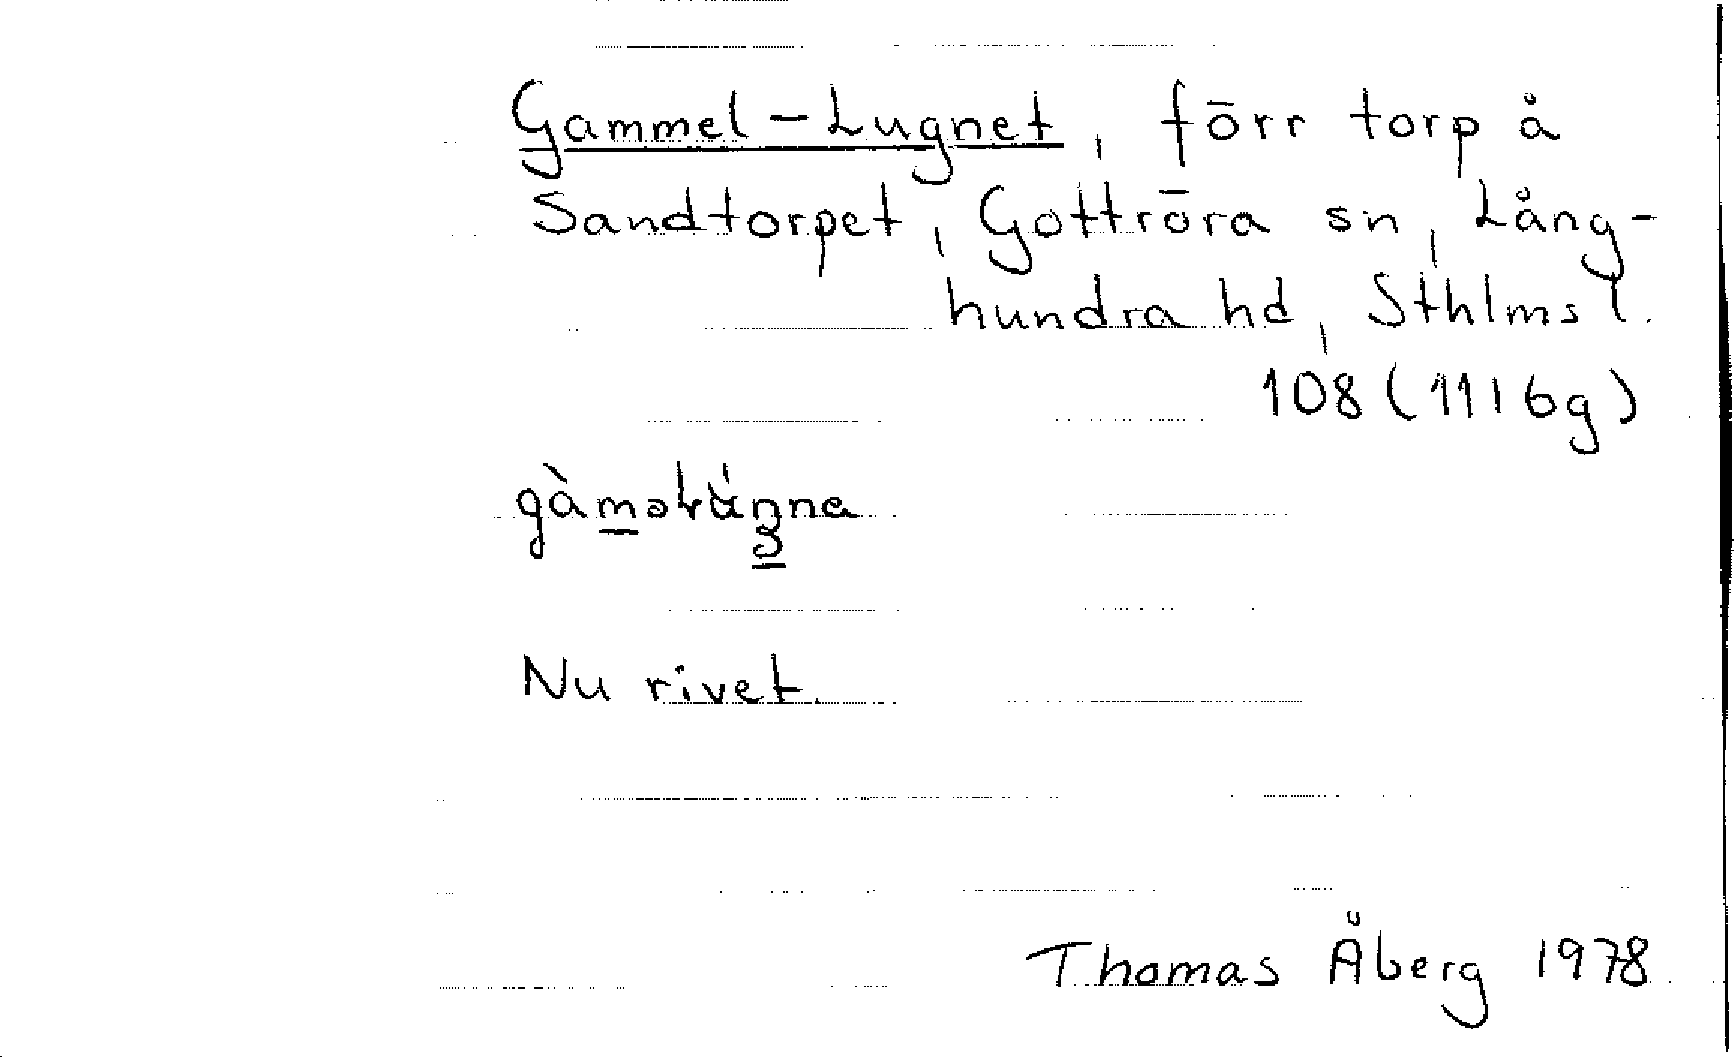 Gammel-Lugnet, förr torp å
Sandtorpet, Gottröra sn, Lång-
hundra hd, Sthlms l.
108 (11I6g)
Nu rivet.
Thomas Åberg 1978